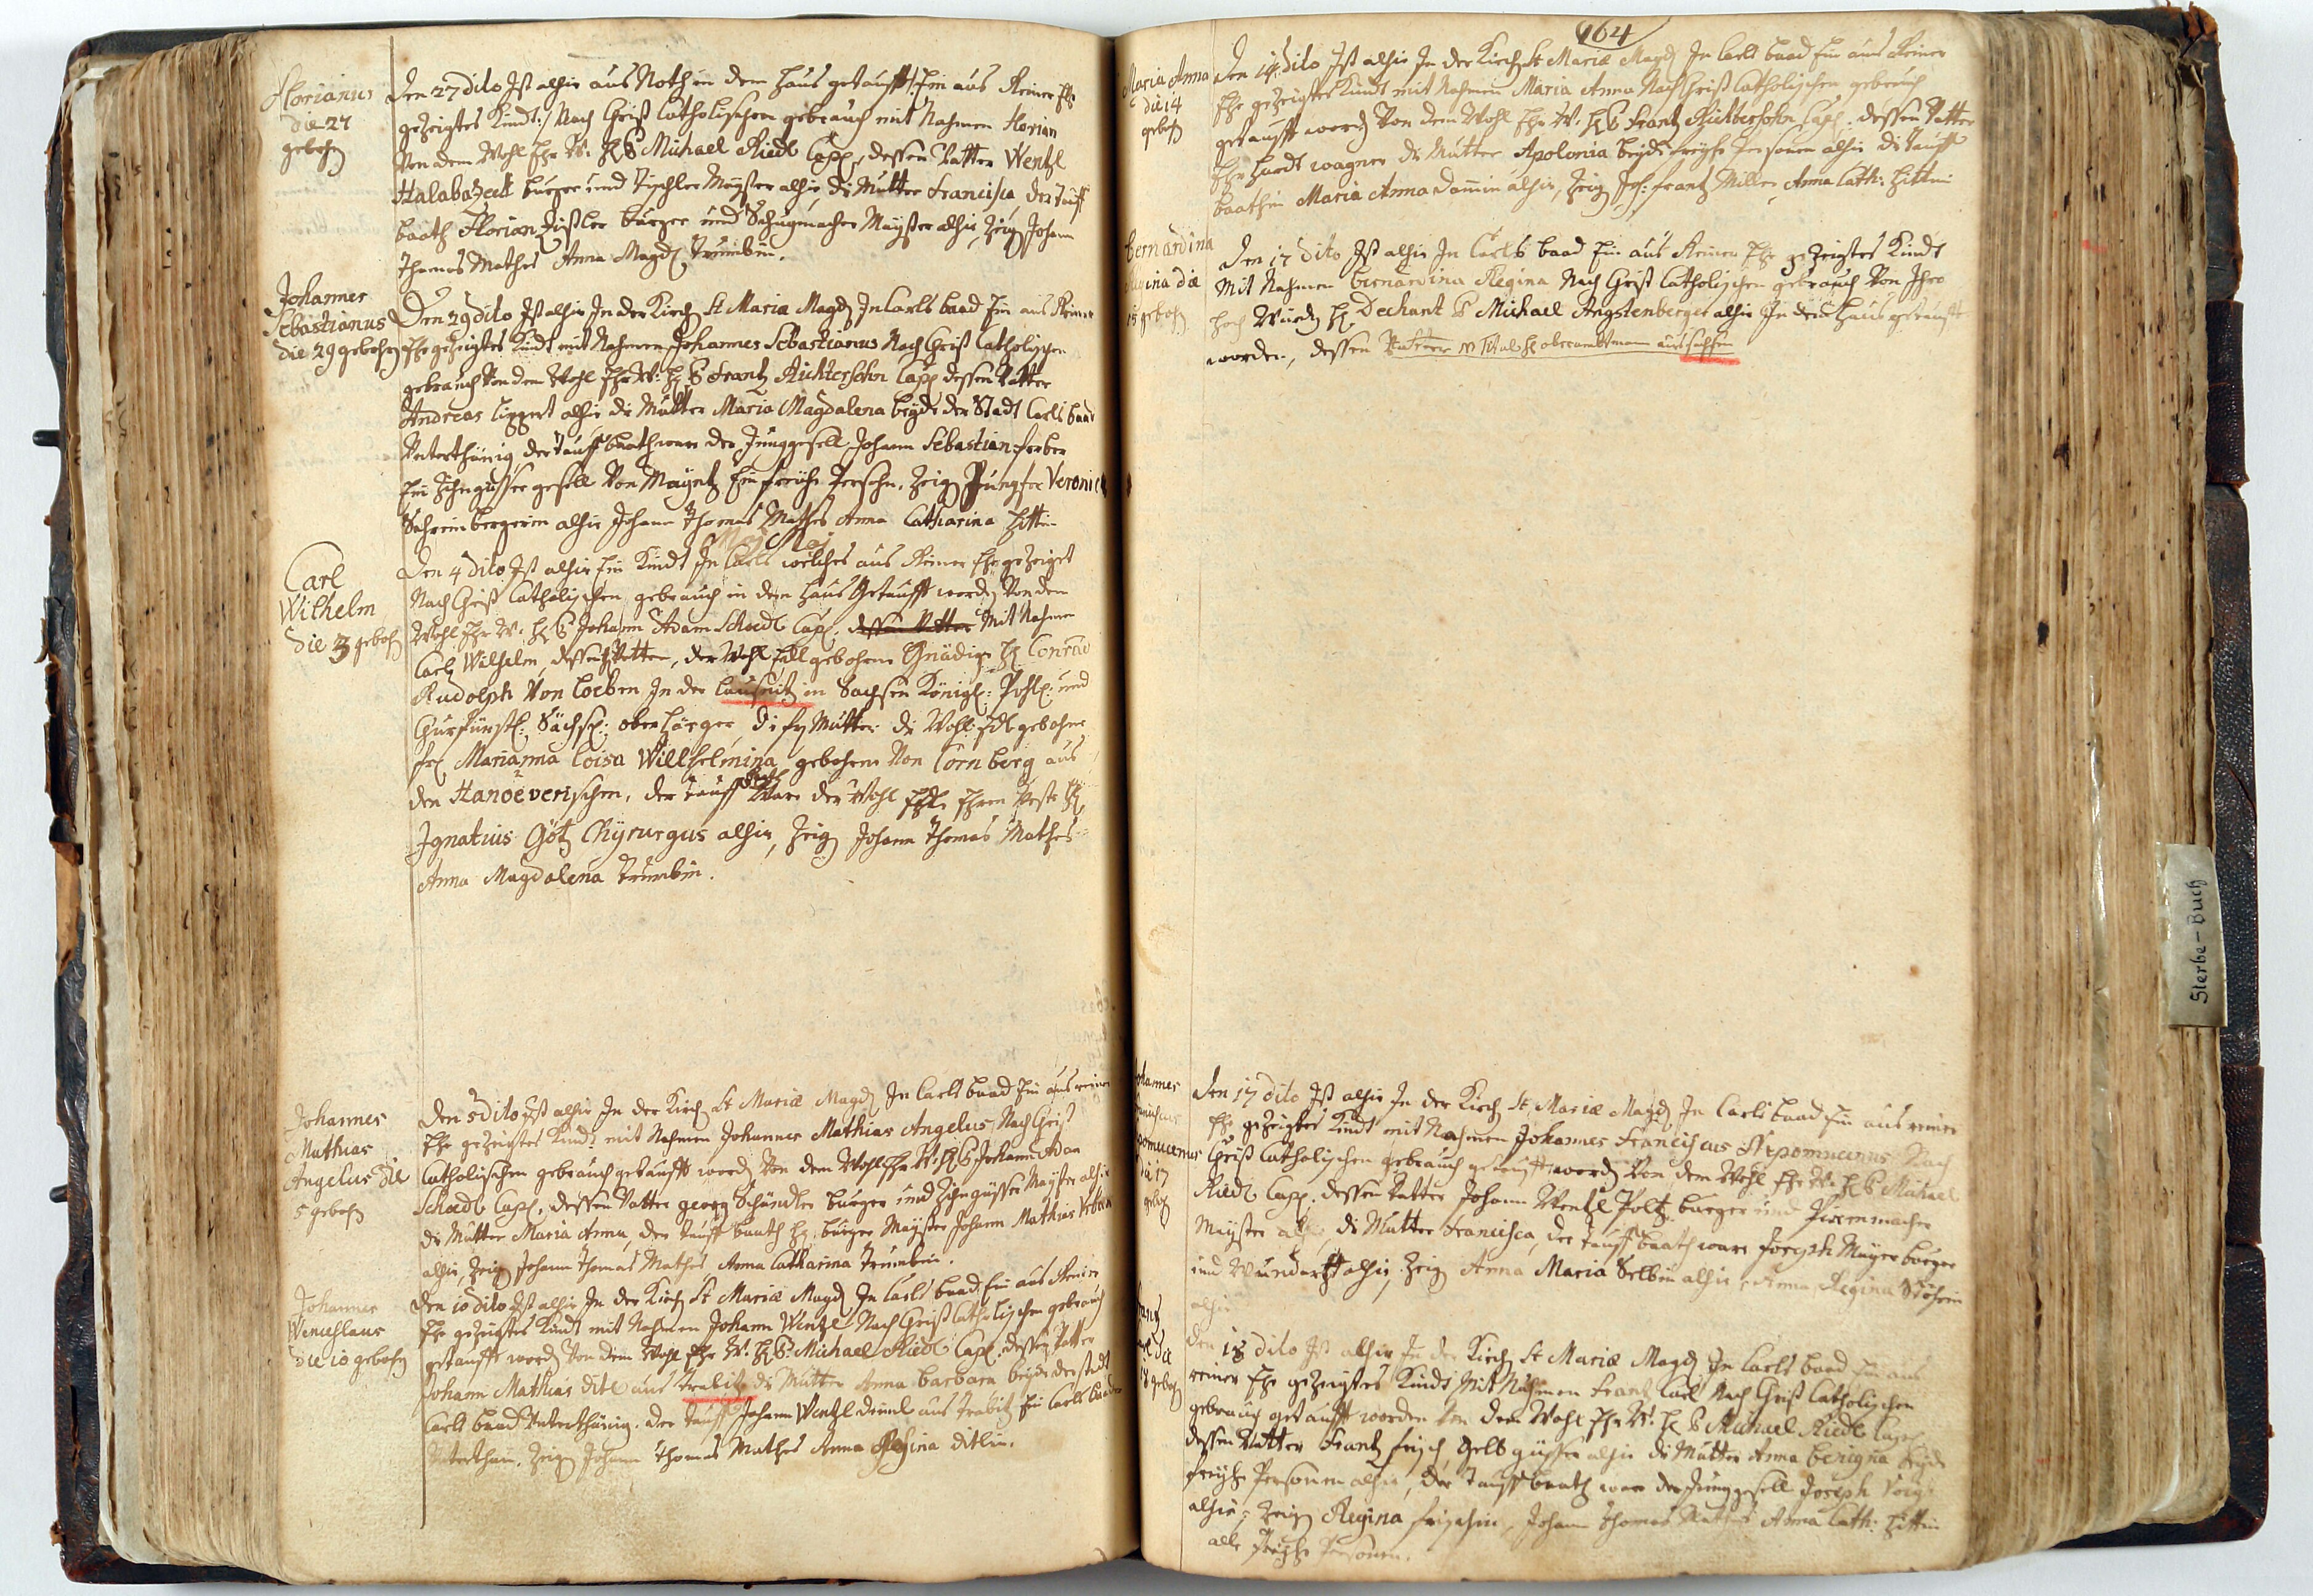 Florianus
die 27
gebohr
Den 27 dito Ist alhir aus Noth in dem Haus getaufft/: Ein aus Reiner Ehe
gezeigtes Kindt :/ Nach Christ Catholischen gebrauch mit Nahmen Florian
Von dem Wohl Ehr W. H P Michael Riedl Capp, dessen Vatter Wentzl
burger und Tischler Meyster alhir, di Mutter Francisca, der Tauff
baath Florian burger und Schugmacher Meyster alhir, Zeig Johann
Thomas Mathes Anna Magd
Johannes
Sebastianus
die 29 gebohrn
Den 29 dito Ist alhir In der Kirch St Maria Magd In Carls baad Ein aus Reiner
Ehe gezeigtes Kindt mit Nahmen Johannes Sebastianus Nach Christ Catholischen
gebrauch Von dem Wohl Ehr W: H P Frantz Richtersohn Capp dessen Vatter
Andreas alhir di Mutter Maria Magdalena beyde der Stadt Carls baad
Unterthänig der Tauff baath ware der Junggesell Johann Sebastian ferber
Ein Zihngüsser gesell Von Mayntz Ein freuhe Persohn, Zeig Jungfer Veronica
alhir Johann Thomas Mathes Anna Catharina
Maj
Carl
Wilhelm
die 3 gebohr
Den 4 dito Ist alhir Ein Kindt In Carls welches aus Reiner Ehe gezeiget
Nach Christ Catholischen gebrauch in dem Haus Getaufft word Von dem
Wohl Ehr W. H P Johann Adam Schoedl Cap, dessen Vatter Mit Nahmen
Carl Wilhelm, dessen Vatter, der Wohl Edl gebohrne Gnädige H Conrad
Rudolph Von Loeben In der Lausnitz in Sachsen Königl: Pohl: und
Churfürstl: Sächs: di Mutter di Wohl Edl gebohrne
fr Marianna Loisa Willhelmina gebohrne Von Cornberg aus
den Hanoeverischen, der Tauff baath Ware der Wohl Edle Ehren Veste H
Ignatius Götz Chyrurgus alhir, Zeig Johann Thomas Mathes
Anna Magdalena
Johannes
Mathias
Angelus die
5 gebohr
Den 5 dito Ist alhir In der Kirch St Mariæ Magd In Carls baad Ein aus reiner
Ehe gezeigtes Kindt mit Nahmen Johannes Mathias Angelus, Nach Christ
Catholischen gebrauch getaufft word Von dem Wohl Ehr W: H P Johann Adam
Schoedl Cap, dessen Vatter georg Schindler burger und Zihngüsser Meyster alhir
di Mutter Maria Anna, der Tauff baath H burger Meyster Johann Mathias
alhir, Zeig Johann Thomas Mathes Anna Catharina
Johannes
Wencehlaus
die 10 gebohr
Den 10 dito Ist alhir In der Kirch St Mariæ Magd In Carls baad Ein aus Reiner
Ehe gezeigtes Kindt mit Nahmen Johann Wentzl Nach Christ Catholischen gebrauch
getaufft word Von dem Wohl Ehr W: H P Michael Riedl Cap, dessen Vatter
Johann Mathias Ditl aus trabitz di Mutter Anna barbara beyde der stadt
Carls baad Unterthänig. der Tauff Johann Wentzl aus trabitz Ein Carls baader
Unterthan. Zeig Johann Thomas Mathes Anna Regina ditlin.
164
Maria Anna
die 14
gebohr
Den 14 dito Ist alhir In der Kirch St Mariæ Magd In Carls baad Ein aus Reiner
Ehe gezeigtes Kindt mit Nahmen Maria Anna Nach Christ Catholischen gebrauch
getaufft word Von dem Wohl Ehr W: H P Frantz Richtersohn Cap, dessen Vatter
wagner di Mutter Apolonia beyde freyhe Persohnen alhir di Tauff
baathin Maria Anna alhir, Zeig Joh: frantz Miller, Anna Cath:
Bernardina
Regina die
15 gebohr
Den 17 dito Ist alhir In Carls baad Ein aus Reiner Ehe gezeigtes Kindt
Mit Nahmen Bernardina Regina Nach Christ Catholischen gebrauch Von Ihro
Hoch Würd H Dechant P Michael Angstenberger alhir In dem Haus getaufft
worden, dessen Vatter N Titul H aus sachsen
Johannes
Franciscus
Nepomucenus
die 17
gebohr
Den 17 dito Ist alhir In der Kirch St Mariæ Magd In Carls baad Ein aus reiner
Ehe gezeigtes Kindt mit Nahmen Johannes Franciscus Nepomucenus Nach
Christ Catholischen gebrauch getaufft word Von dem Wohl Ehr W: H P Michael
Riedl Capp, dessen Vatter Johann Wentzl Poltz burger und
Meyster alhir, di Mutter Francisca, der Tauff baath ware Joseph Mayer burger
und Wundartzt alhir, Zeig Anna Maria Selbin alhir, Anna Regina
alhir
Frantz
Carl die
18 gebohr
Den 18 dito Ist alhir In der Kirch St Mariæ Magd In Carls baad Ein aus
reiner Ehe gezeigtes Kindt Mit Nahmen Frantz Carl Nach Christ Catholischen
gebrauch getaufft worden Von dem Wohl Ehr W: H P Michael Riedl Capp
dessen Vatter Frantz frisch gelb güsser alhir di Mutter Anna benigna beyde
freyhe Persohnen alhir, der Tauff baath ware der Junggesell Joseph Voigt
alhir, Zeig Regina frischin, Johann Thomas Mathes Anna Cath:
alle freyhe Persohnen.
Sterbe-Buch